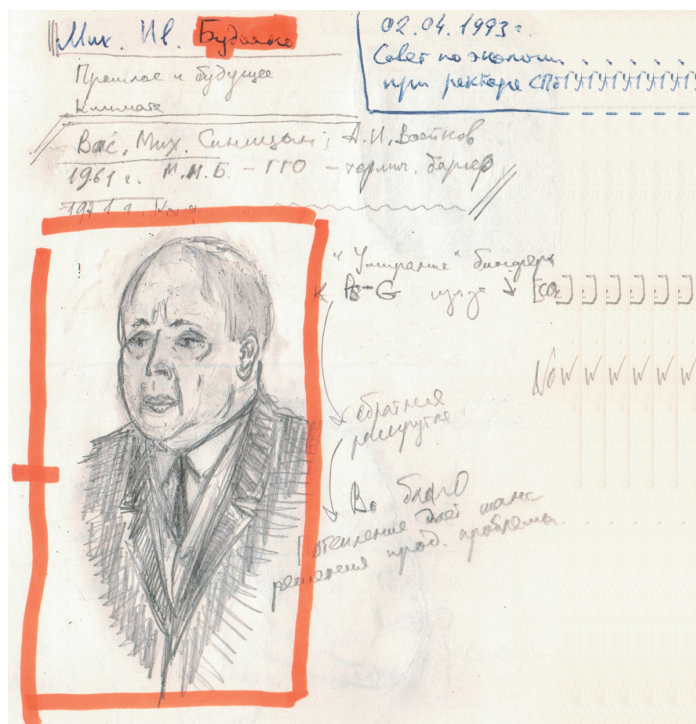 Мих. Ив. Будыко
Прошлое и будущее
Климата
02.04.1993г.
Совет по экологии
при ректоре СПб
Вас. Мих. Синицын; А.И. Воейков
1961 г. М.И.Б. – ГГО – термич. барьер
1971 г.
"Умирание" биосферы
↓ [CO₂]
No
обратная
Во благо
Потепление даёт шанс
решения прод. проблемы